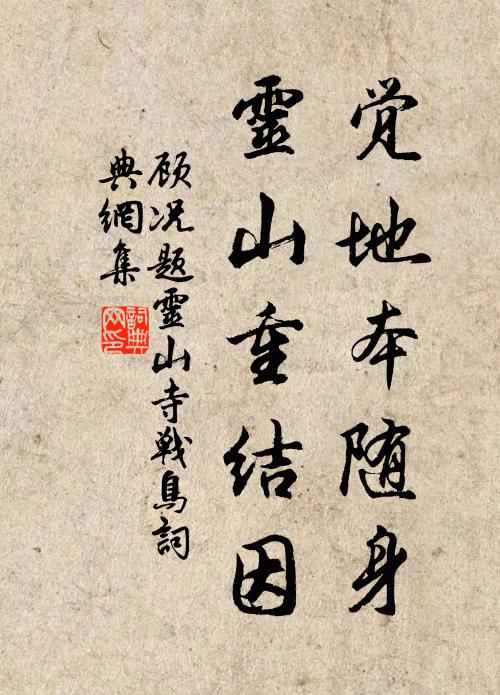 覚地本随身
靈山重结因
顾况题靈山寺戦鳥詞
典網集
詞典網印